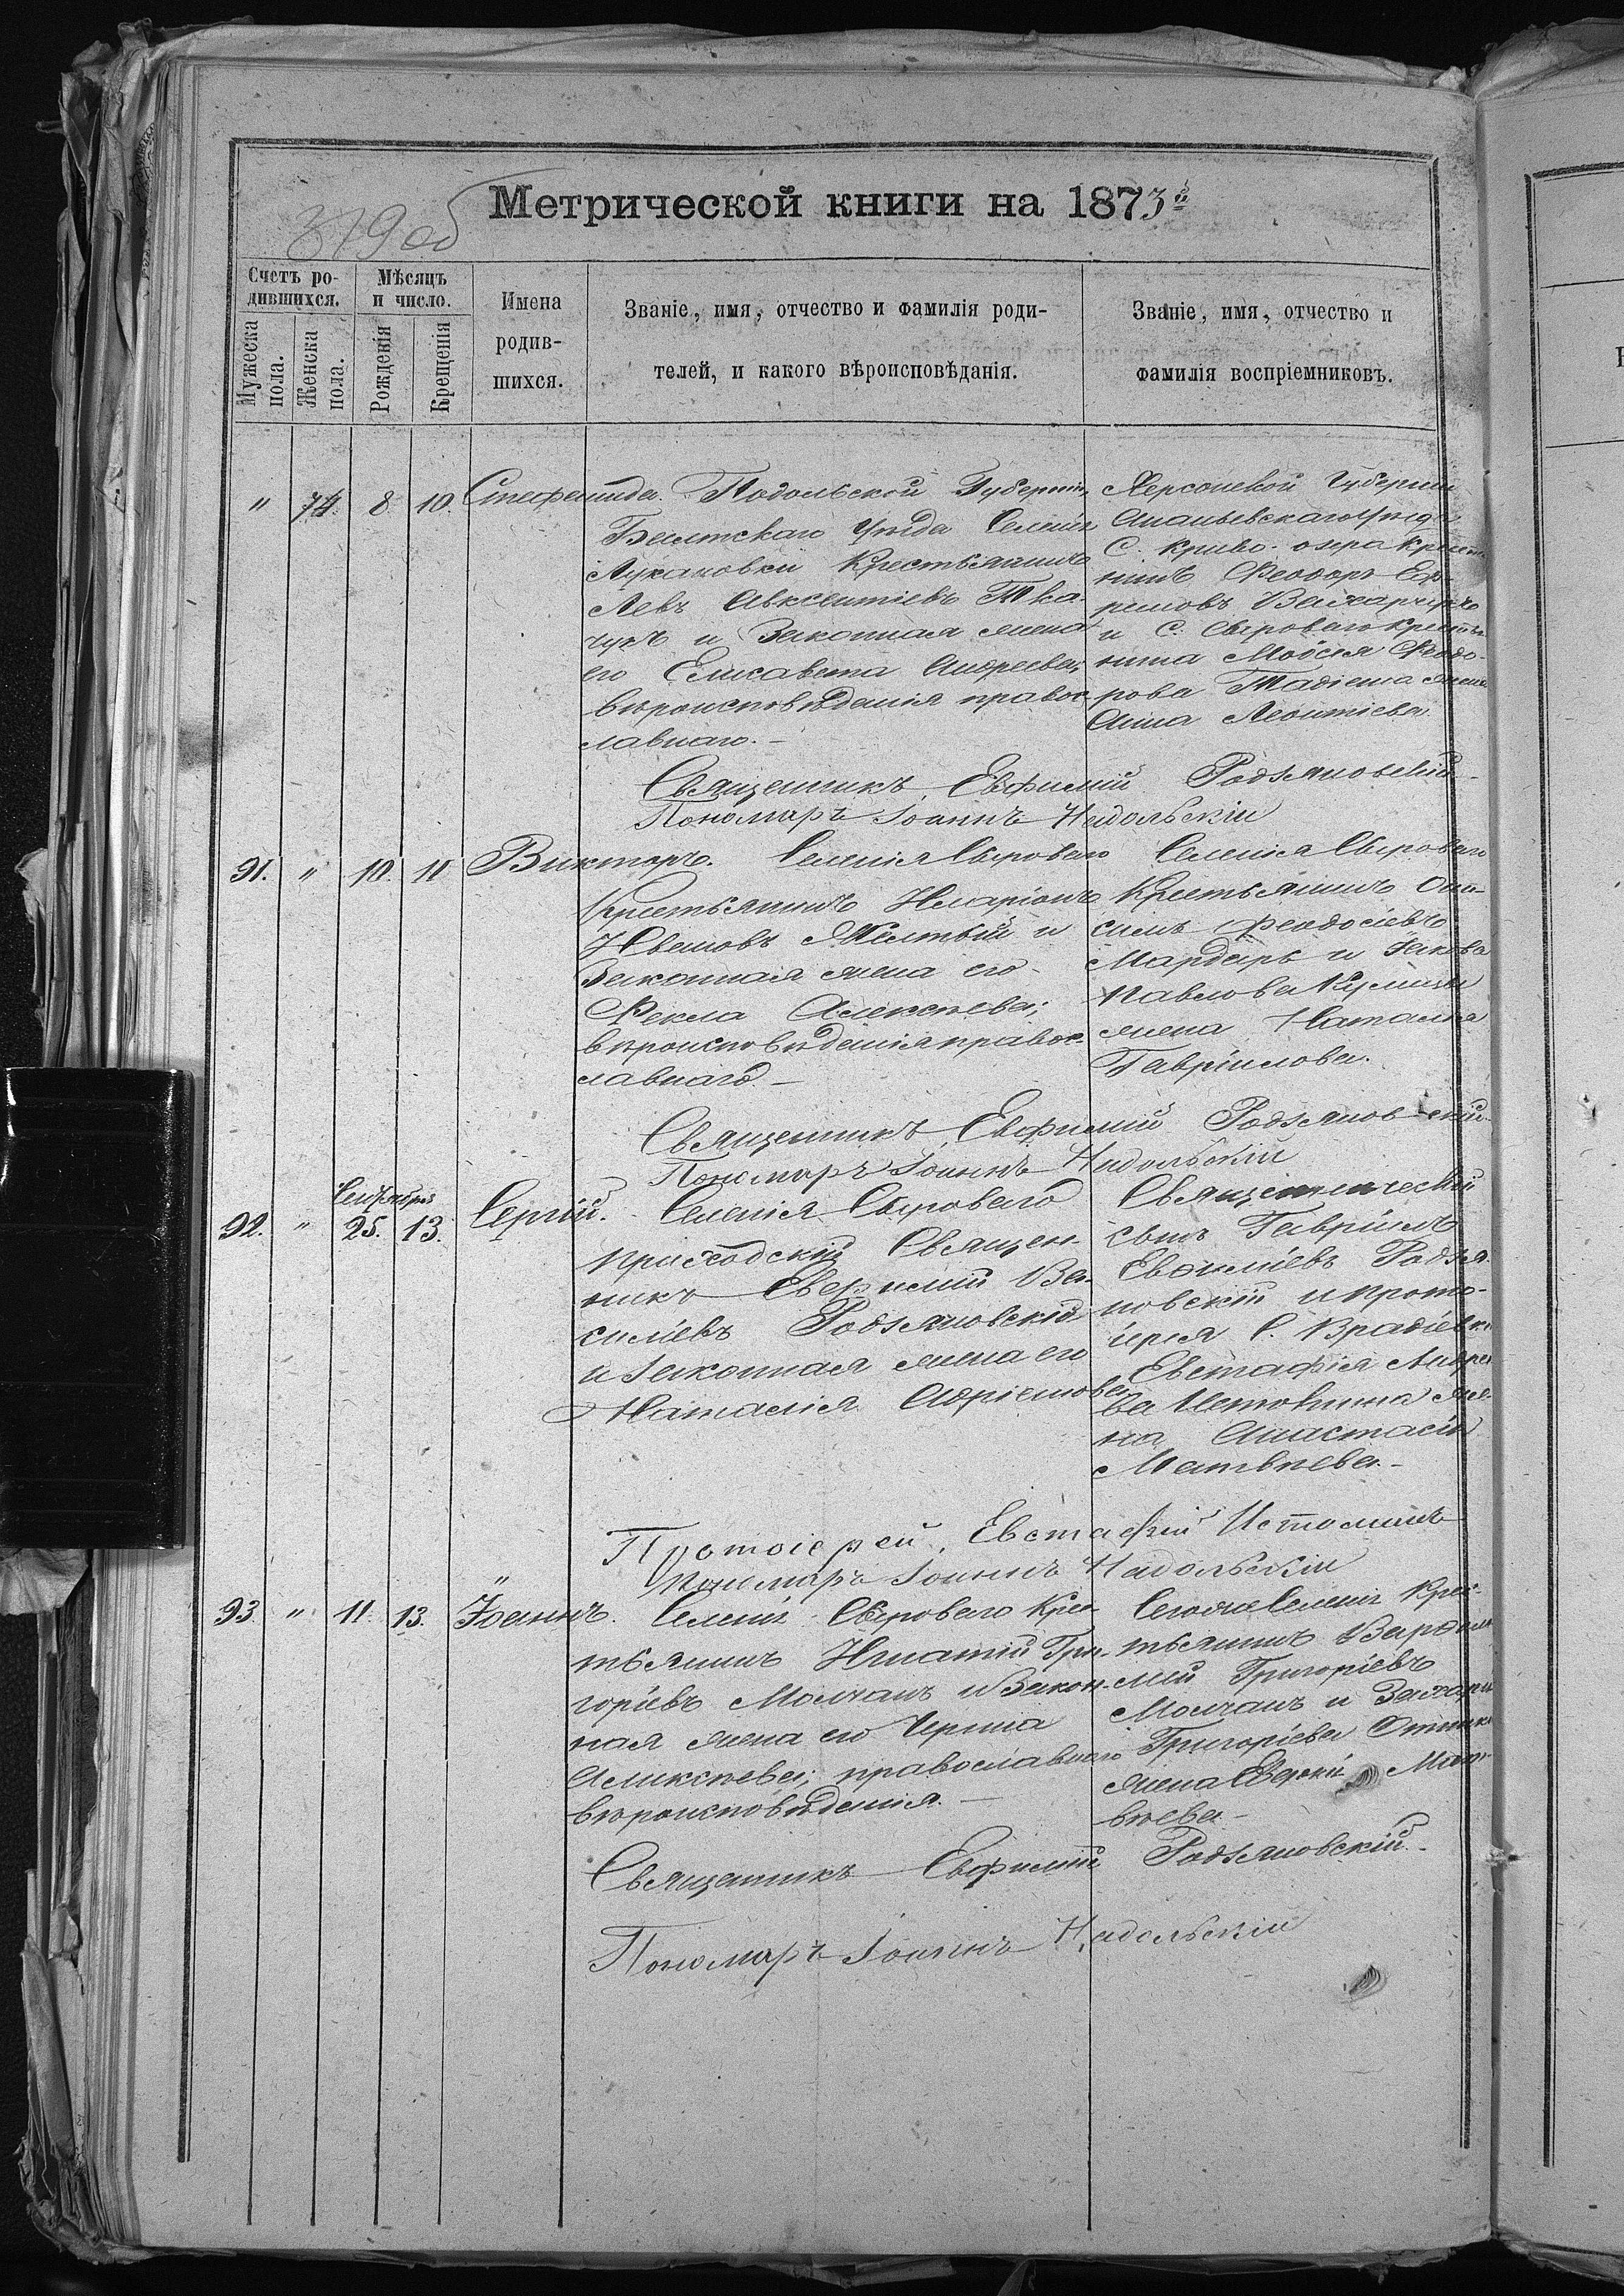 379 об
Метрической книги на 1873й
Счетъ ро-
дившихся.
Мѣсяцъ
и число.
Имена
родив-
шихся.
Званіе, имя, отчество и фамилія роди-
телей, и какого вѣроисповѣданія.
Званіе, имя, отчество и
фамилія воспріемниковъ.
Мужеска
пола.
Женска
пола.
Рожденія
Крещенія
" 74. 8 10. Стефанида. Подольской Губерніи,
Балтскаго Уѣзда Селенія
Лукановки Крестьянинъ
Левъ Авксентіевъ Тка-
чукъ и Законная жена
его Елисавета Андреева,
вѣроисповѣданія правос-
лавнаго.—
Херсонской Губерніи
Ананьевскаго Уѣзда
С. Криво-озера Кресть
нинъ Феодоръ Еф-
ремовъ
и С. Сыроваго Крестья
нина Моѵсея Феодо-
рова жена
Анна Леонтіева
Священникъ Евфимій Родзяновскій
Пономарь Іоаннъ Надольскій
91. " 10. 11 Викторъ. Селенія Сыроваго
Крестьянинъ Иларіонъ
Ивановъ Желтый и
Законная жена его
Фекла Алексѣева;
вѣроисповѣданія правос-
лавнаго.—
Селенія Сыроваго
Крестьянинъ Они-
симъ Феодосіевъ
Мардарь и Іакова
Павлова
жена Наталія
Гавріилова.
Священникъ Евфимій Родзяновскій.
Пономарь Іоаннъ Надольскій
Сентября
92. " 25. 13. Сергій. Селенія Сыроваго
приходскій Священ-
никъ Евфимій Ва-
силіевъ Родзяновскій
и законная жена его
Наталія Адріанова
Священническій
сынъ Гавріилъ
Евфиміевъ Родзя-
новскій и прото-
іерея С. Врадіевки
Евстафія Андрее
ва Истомина же-
на Анастасія
Матвѣева.—
Протоіерей Евстафій Истоминъ
Пономарь Іоаннъ Надольскій
"
93. " 11. 13. Іоаннъ. Селенія Сыроваго Крес-
тьянинъ Игнатій Гри-
горіевъ Молчанъ и Закон-
ная жена его Ирина
Алексѣева; православнаго
вѣроисповѣданія.—
Селенія Крес-
тьянинъ
Григоріевъ
Молчанъ и Захарія
Григоріева
жена Мат-
вѣева—
Священникъ Евфимій Родзяновскій.
Пономарь Іоаннъ Надольскій